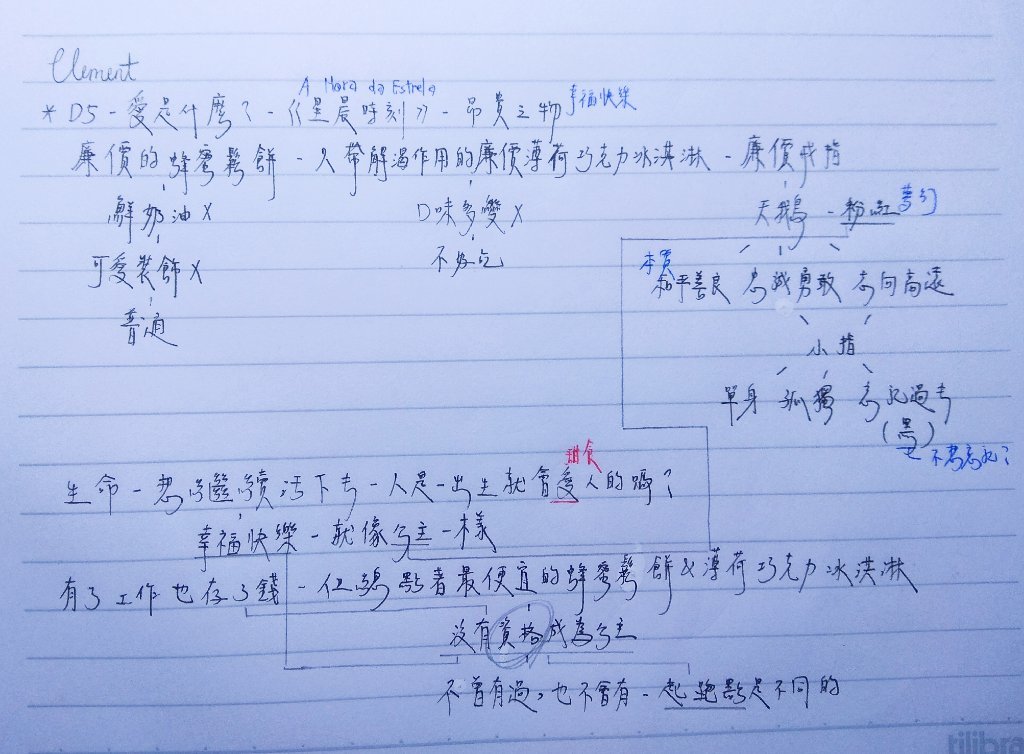 Clement
A Hora da Estrela
* D5 - 愛是什麼? - 《星辰時刻》 - 昂貴之物 幸福快樂
廉價的蜂蜜鬆餅 - 只帶解渴作用的廉價薄荷巧克力冰淇淋 - 廉價戒指
鮮奶油 X 口味多變 X 天鵝 - 粉紅 夢幻
可愛裝飾 X 不好吃 本質 和平善良 忠誠勇敢 志向高遠
普通 小指
單身 孤獨 忘記過去
(黑)
不想忘記?
甜食
生命 - 想繼續活下去 - 人是一出生就會愛人的嗎?
幸福快樂 - 就像公主一樣
有了工作也存了錢 - 但總點著最便宜的蜂蜜鬆餅&薄荷巧克力冰淇淋
沒有資格成為公主
不曾有過,也不會有 - 起跑點是不同的
tilibra